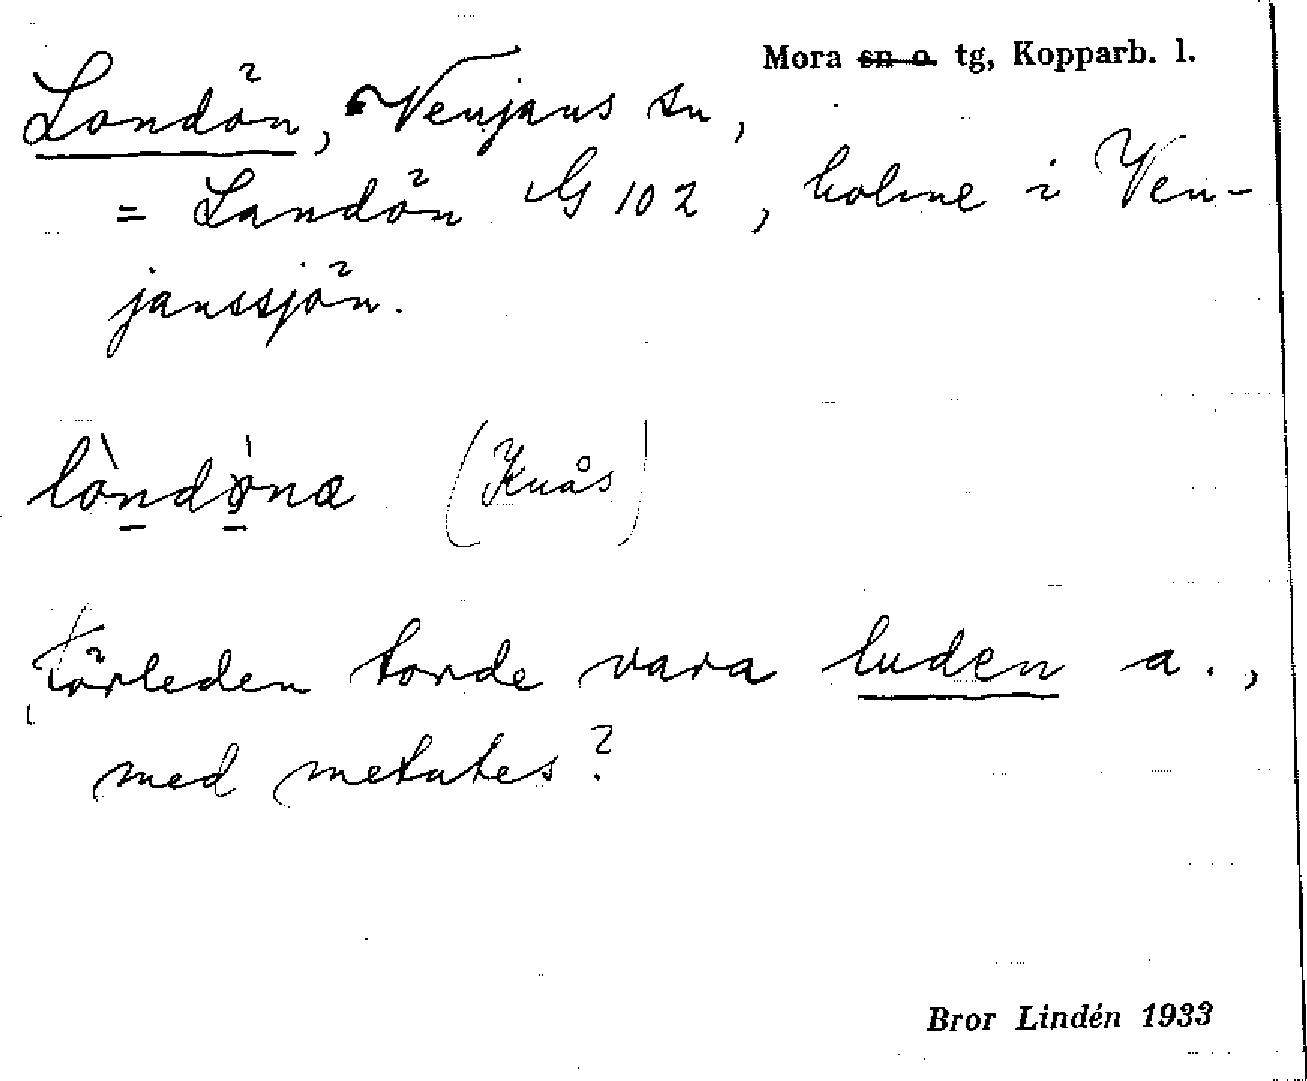 Mora sn o. tg, Kopparb. l.
Londön, Venjans sn,
= Landön G 102, holme i Ven-
janssjön.
lòndòna (Knås)
Förleden torde vara luden a.,
med metates?
Bror Lindén 1933